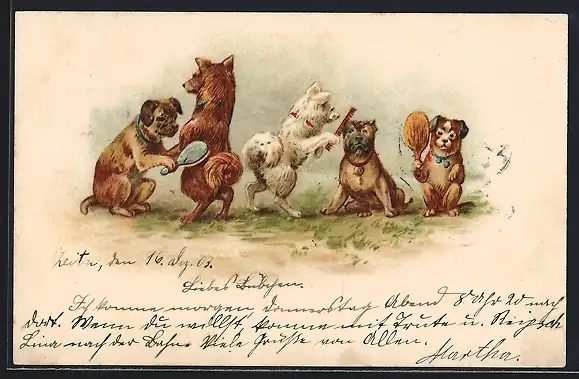 Zeitz, den 16. Dez. 03.
Liebes Lübchen.
Ich komme morgen Donnerstag Abend 8 Uhr 20 nach
dort. Wenn du willst komme mit Trute u.
Lina nach der Bahn. Viele Grüße von Allen.
Martha.